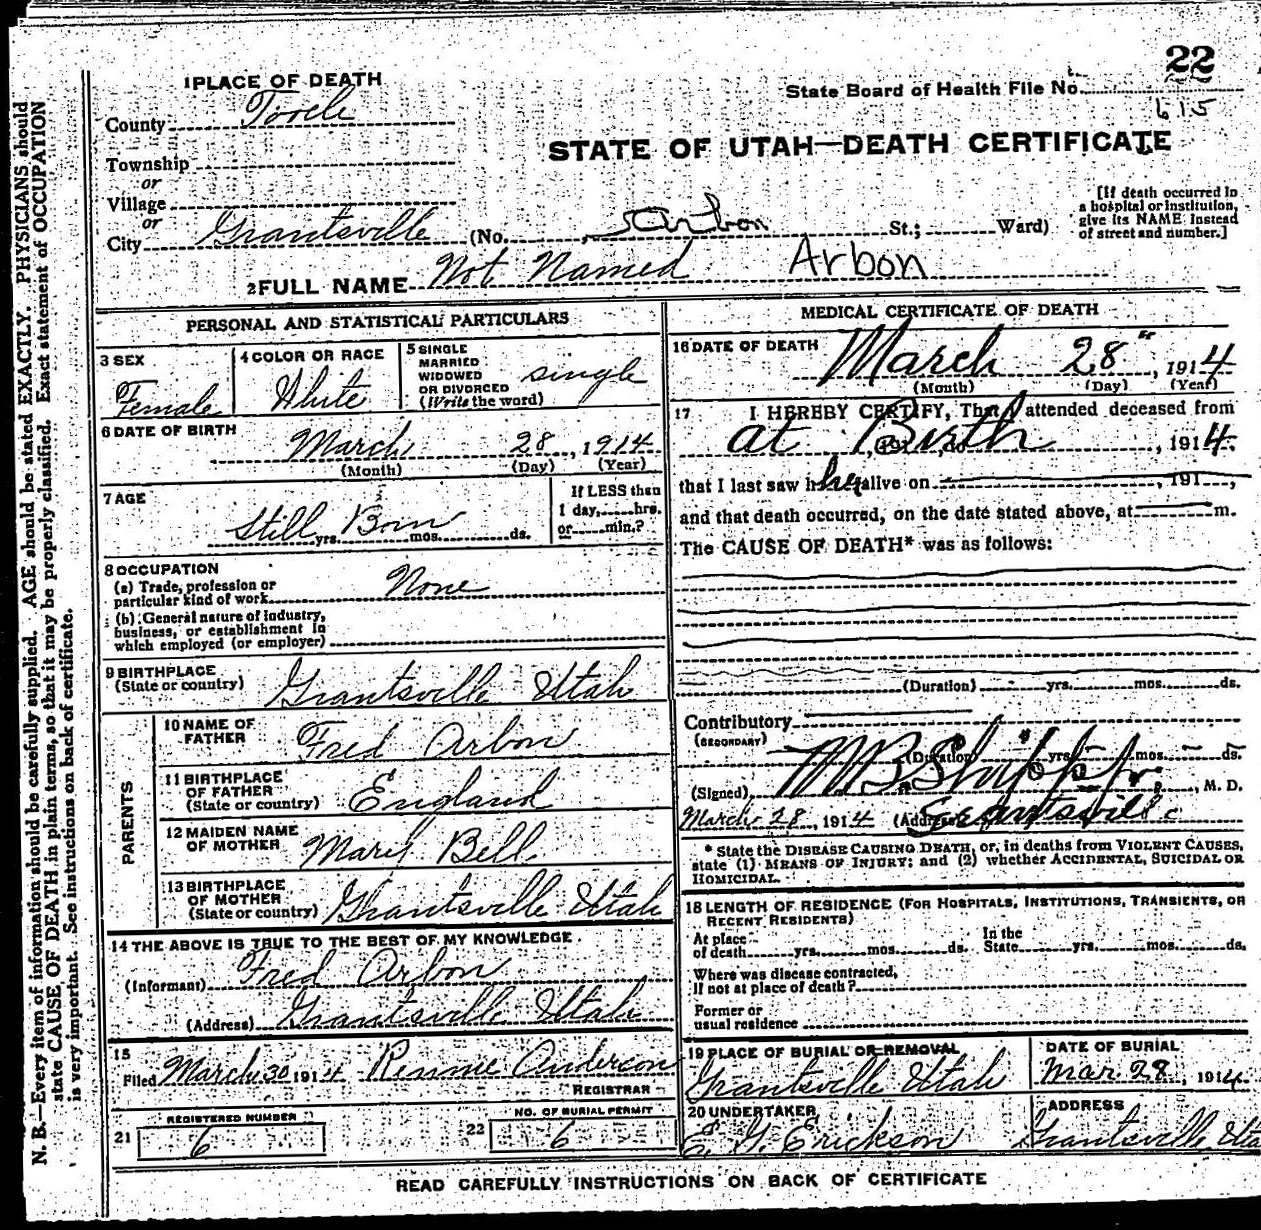 22
1 PLACE OF DEATH
State Board of Health File No.
615
County Tooele
STATE OF UTAH—DEATH CERTIFICATE
Township
or
Village
or
City Grantsville (No. , Arbon St.; Ward)
[If death occurred in
a hospital or institution,
give its NAME instead
of street and number.]
2 FULL NAME Not Named Arbon
PERSONAL AND STATISTICAL PARTICULARS
3 SEX
Female
4 COLOR OR RACE
White
5 SINGLE
MARRIED
WIDOWED
OR DIVORCED
(Write the word)
single
6 DATE OF BIRTH
March 28, 1914
(Month) (Day) (Year)
7 AGE
Still Born
yrs. mos. ds.
If LESS than
1 day, hrs.
or min.?
8 OCCUPATION
(a) Trade, profession or
particular kind of work None
(b) General nature of industry,
business, or establishment in
which employed (or employer)
9 BIRTHPLACE
(State or country) Grantsville Utah
PARENTS
10 NAME OF
FATHER Fred Arbon
11 BIRTHPLACE
OF FATHER
(State or country) England
12 MAIDEN NAME
OF MOTHER Mary Bell
13 BIRTHPLACE
OF MOTHER
(State or country) Grantsville Utah
14 THE ABOVE IS TRUE TO THE BEST OF MY KNOWLEDGE.
(Informant) Fred Arbon
(Address) Grantsville Utah
15
Filed March 30 1914 Anderson
REGISTRAR
21 REGISTERED NUMBER
6
22 NO. OF BURIAL PERMIT
6
MEDICAL CERTIFICATE OF DEATH
16 DATE OF DEATH
March 28", 1914
(Month) (Day) (Year)
17 I HEREBY CERTIFY, That I attended deceased from
at Birth, 1914.
that I last saw her alive on , 191 ,
and that death occurred, on the date stated above, at m.
The CAUSE OF DEATH* was as follows:
(Duration) yrs. mos. ds.
Contributory
(SECONDARY)
(Duration) yrs. mos. ds.
(Signed) , M. D.
March 28, 1914 (Address) Grantsville
* State the DISEASE CAUSING DEATH, or, in deaths from VIOLENT CAUSES,
state (1) MEANS OF INJURY; and (2) whether ACCIDENTAL, SUICIDAL OR
HOMICIDAL.
18 LENGTH OF RESIDENCE (FOR HOSPITALS, INSTITUTIONS, TRANSIENTS, OR
RECENT RESIDENTS)
At place
of death yrs. mos. ds.
In the
State yrs. mos. ds.
Where was disease contracted,
If not at place of death?
Former or
usual residence
19 PLACE OF BURIAL OR REMOVAL
Grantsville Utah
DATE OF BURIAL
Mar. 28, 1914
20 UNDERTAKER
E. G. Erickson
ADDRESS
Grantsville Uta
READ CAREFULLY INSTRUCTIONS ON BACK OF CERTIFICATE
N. B.—Every item of information should be carefully supplied. AGE should be stated EXACTLY. PHYSICIANS should
state CAUSE OF DEATH in plain terms, so that it may be properly classified. Exact statement of OCCUPATION
is very important. See instructions on back of certificate.